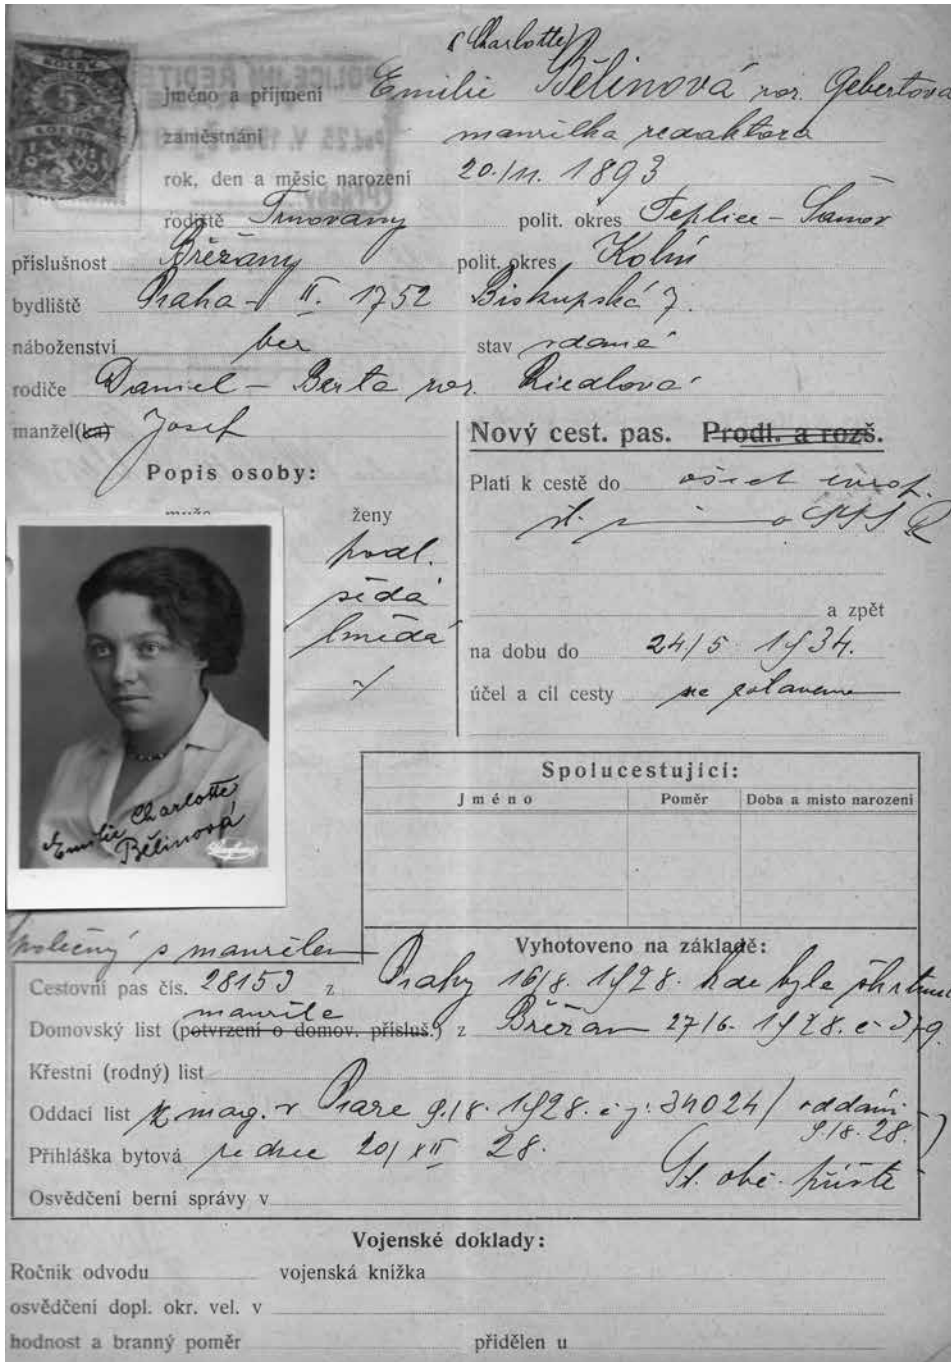 (Charlotte)
jméno a příjmení Emilie Bělinová roz. Gebertová
zaměstnání manželka redaktora
rok, den a měsíc narození 20./11. 1893
rodiště Trnovany polit. okres Teplice – Šanov
příslušnost Břežany polit. okres Kolín
bydliště Praha – II. 1752 Biskupská 7.
náboženství bez stav vdaná
rodiče Daniel – Berta roz. Riedlová
manžel(ka) Josef
Nový cest. pas. Prodl. a rozš.
Popis osoby:
Platí k cestě do všech evrop.
muže ženy
st. SSSR
podl.
šedá
hnědá
a zpět
na dobu do 24/5 1934.
účel a cíl cesty
Emilie Charlotte
Bělinová
Spolucestující:
Jméno Poměr Doba a místo narození
společný s manželem
Vyhotoveno na základě:
Cestovní pas čís. 28153 z Prahy 16/8. 1928. kde byla škrtnuta
manžela
Domovský list (potvrzení o domov. přísluš.) z Břežan 27/6. 1928. č. 379.
Křestní (rodný) list
Oddací list z mag. v Praze 9./8. 1928. č j: 34024/ oddáni
9/8. 28.
Přihláška bytová 20/XII 28.
St. obč.
Osvědčení berní správy v
Vojenské doklady:
Ročník odvodu vojenská knížka
osvědčení dopl. okr. vel. v
hodnost a branný poměr přidělen u